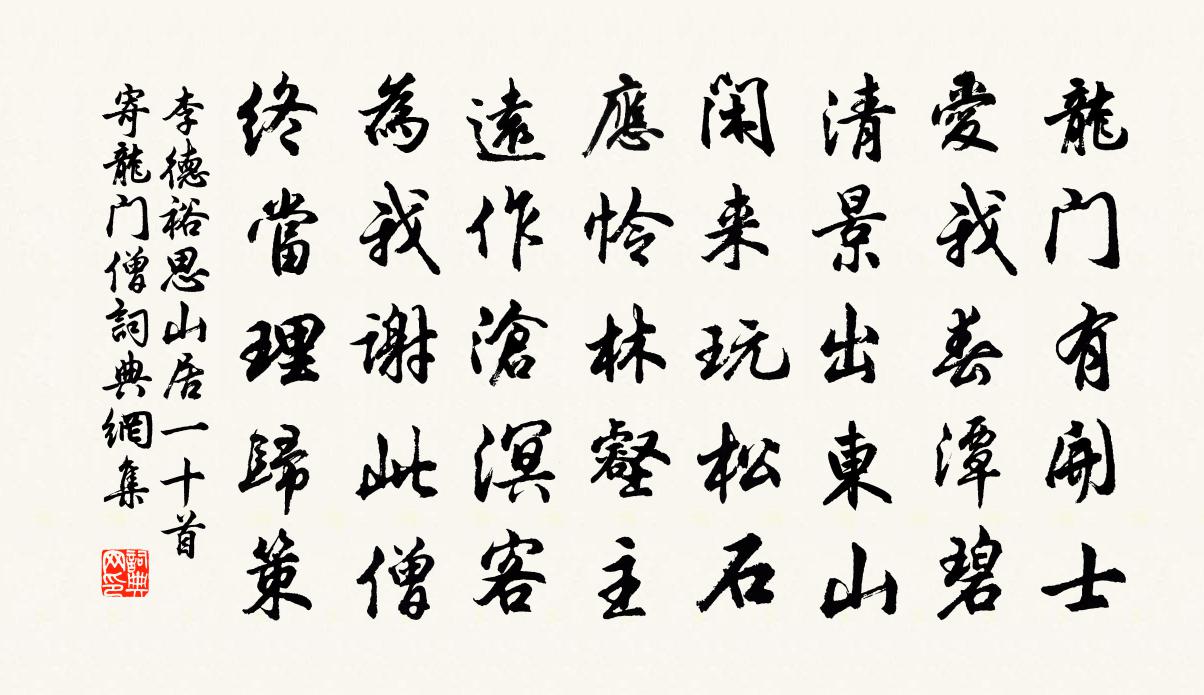 龍门有開士
愛我春潭碧
清景出東山
閑来玩松石
應怜林壑主
遠作滄溟客
為我謝此僧
終當理歸策
李德裕思山居一十首
寄龍门僧詞典網集
詞典网印